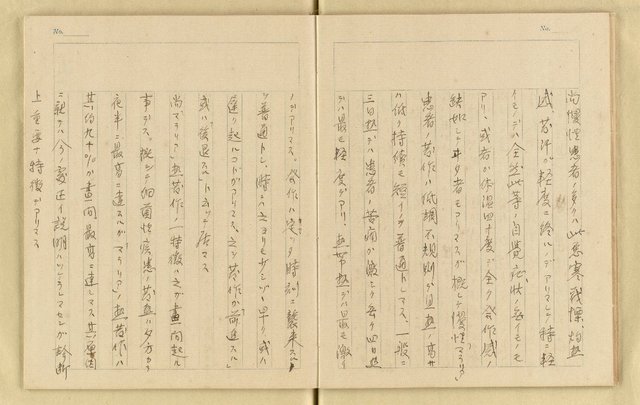 No.
尚慢性患者ノ多クハ此悪寒戦慄、灼熱
感発汗ガ軽度ニ終ルノデアリマシテ特ニ軽
イモノデハ全然此等ノ自覚症状ノ無イモノモ
アリ、或者ハ体温四十度デ全ク発作感ノ
缺如シタ者モアリマスガ概シテ慢性「マラリア」
患者ノ発作ハ低調不規則デ且熱ノ高サ
ハ低ク持続モ短イノヲ普通トシマス、一般ニ
三日熱デハ患者ノ苦痛ガ激シク 四日熱
デハ最モ軽度デアリ、熱帯熱デハ最モ激イ
No.
ノデアリマス。発作ハ定ツタ時刻ニ襲来スル
ヲ普通トシ、時ニハ之ヨリモ 早ク或ハ
遅ク起ルコトガアリマス。之ヲ発作ガ「前進スル」
或ハ「後退スル」ト云ツテ居マス
尚「マラリア」熱発作ノ一特徴ハ之ガ昼間起ル
事デス。概シテ細菌性疾患ノ発熱ハ夕方カラ
夜半ニ最高ニ達スルガ「マラリア」ノ熱発作ハ
其ノ約九十%ガ昼間最高ニ達シマス其ノ理由
ニ就テハ今ノ處正イ説明ハツイテヰマセンガ診断
上重要ナ特徴デアリマス